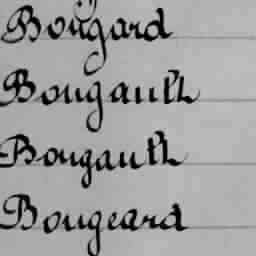 Bougard
Bougault
Bougault
Bougeard